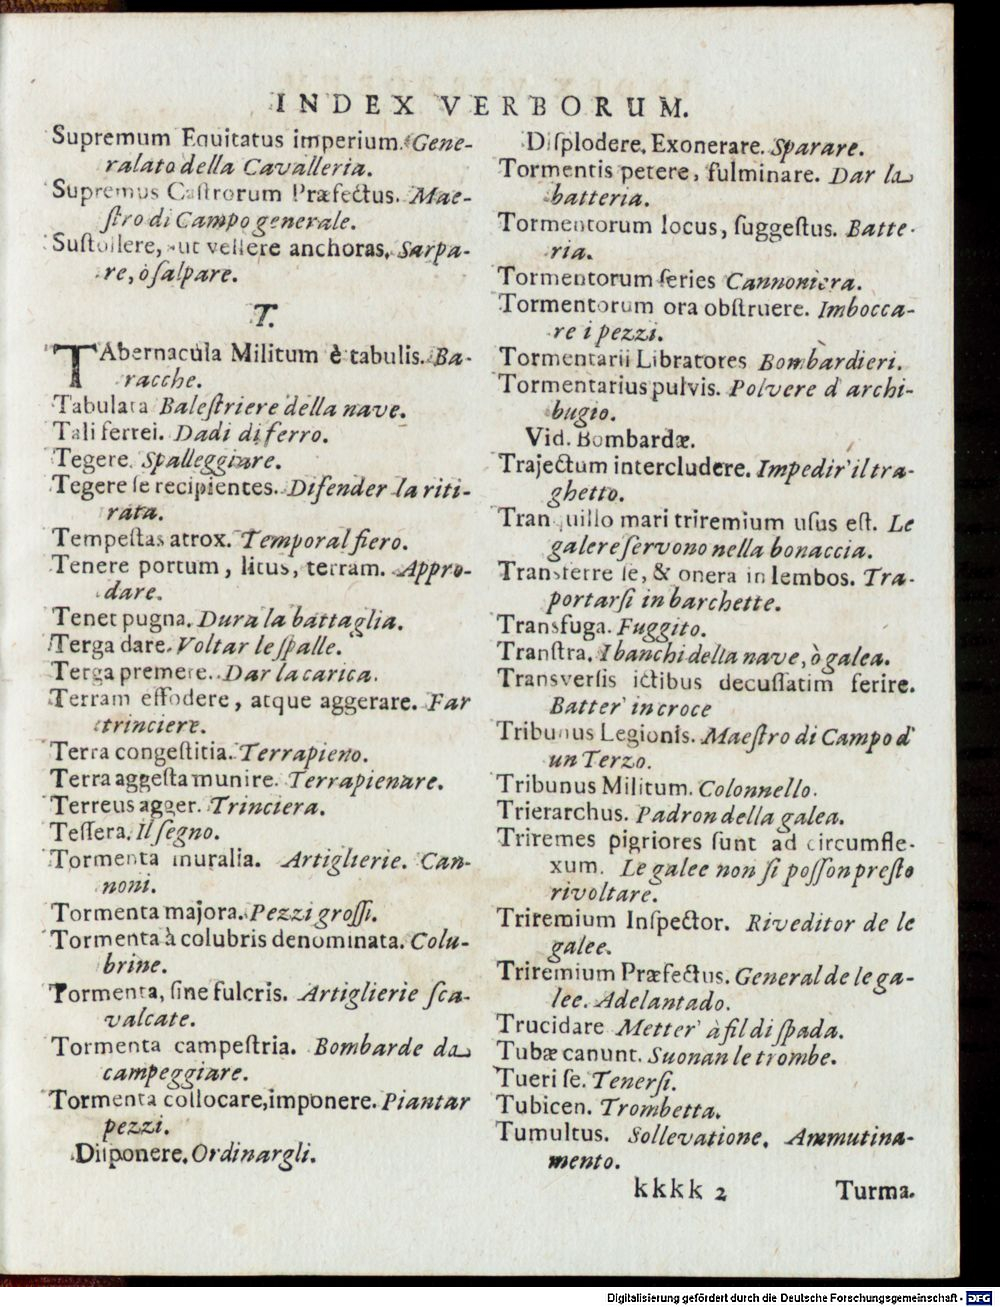 INDEX VERBORUM.
Supremum Equitatus imperium. Gene-
ralato della Cavalleria.
Supremus Caſtrorum Præfectus. Mae-
ſtro di Campo generale.
Suſtollere, aut vellere anchoras. Sarpa-
re, ò ſalpare.
T.
TAbernacula Militum è tabulis. Ba-
racche.
Tabulata Baleſtriere della nave.
Tali ferrei. Dadi di ferro.
Tegere. Spalleggiare.
Tegere ſe recipientes. Difender la riti-
rata.
Tempeſtas atrox. Temporal fiero.
Tenere portum, litus, terram. Appro-
dare.
Tenet pugna. Dura la battaglia.
Terga dare. Voltar le ſpalle.
Terga premere. Dar la carica.
Terram effodere, atque aggerare. Far
trinciere.
Terra congeſtitia. Terrapieno.
Terra aggeſta munire. Terrapienare.
Terreus agger. Trinciera.
Teſſera. Il ſegno.
Tormenta muralia. Artiglierie. Can-
noni.
Tormenta majora. Pezzi groſſi.
Tormenta à colubris denominata. Colu-
brine.
Tormenta, ſine fulcris. Artiglierie ſca-
valcate.
Tormenta campeſtria. Bombarde da
campeggiare.
Tormenta collocare, imponere. Piantar
pezzi.
Diſponere. Ordinargli.
Diſplodere. Exonerare. Sparare.
Tormentis petere, fulminare. Dar la
batteria.
Tormentorum locus, ſuggeſtus. Batte-
ria.
Tormentorum ſeries Cannoniera.
Tormentorum ora obſtruere. Imbocca-
re i pezzi.
Tormentarii Libratores Bombardieri.
Tormentarius pulvis. Polvere d' archi-
bugio.
Vid. Bombardæ.
Trajectum intercludere. Impedir' il tra-
ghetto.
Tranquillo mari triremium uſus eſt. Le
galere ſervono nella bonaccia.
Transferre ſe, & onera in lembos. Tra-
portarſi in barchette.
Transfuga. Fuggito.
Tranſtra. I banchi della nave, ò galea.
Transverſis ictibus decuſſatim ferire.
Batter' in croce
Tribunus Legionis. Maeſtro di Campo d'
un Terzo.
Tribunus Militum. Colonnello.
Trierarchus. Padron della galea.
Triremes pigriores ſunt ad circumfle-
xum. Le galee non ſi poſſon preſto
rivoltare.
Triremium Inſpector. Riveditor de le
galee.
Triremium Præfectus. General de le ga-
lee. Adelantado.
Trucidare Metter' à fil di ſpada.
Tubæ canunt. Suonan le trombe.
Tueri ſe. Tenerſi.
Tubicen. Trombetta.
Tumultus. Sollevatione. Ammutina-
mento.
kkkk 2 Turma.
Digitalisierung gefördert durch die Deutsche Forschungsgemeinschaft - DFG